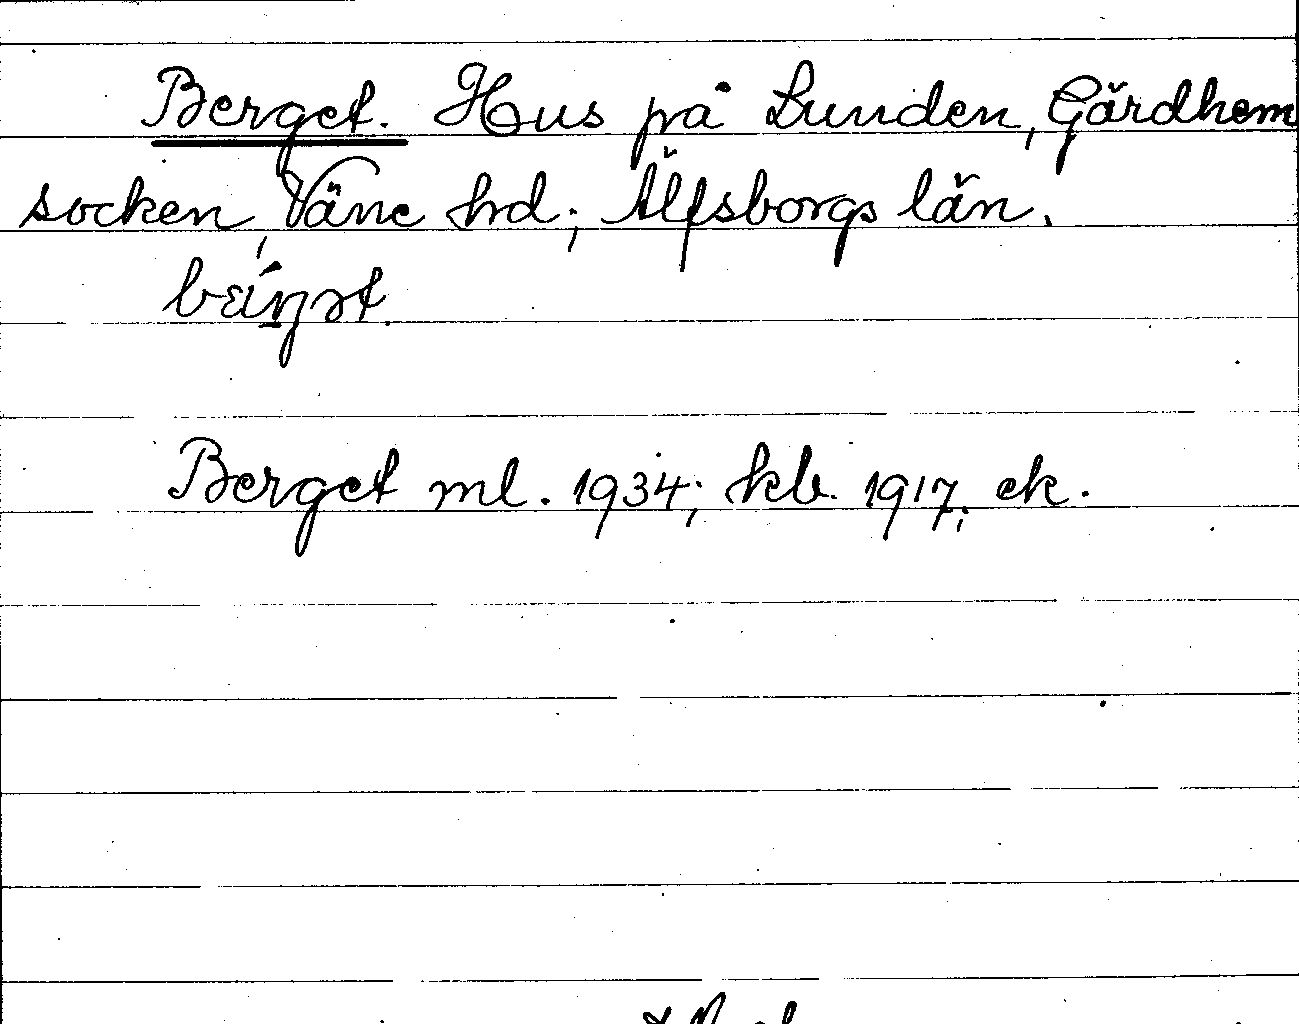 Berget. Hus på Lunden, Gärdhem
socken, Väne hd; Älfsborgs län.
Berget ml. 1934; kb. 1917; ek.